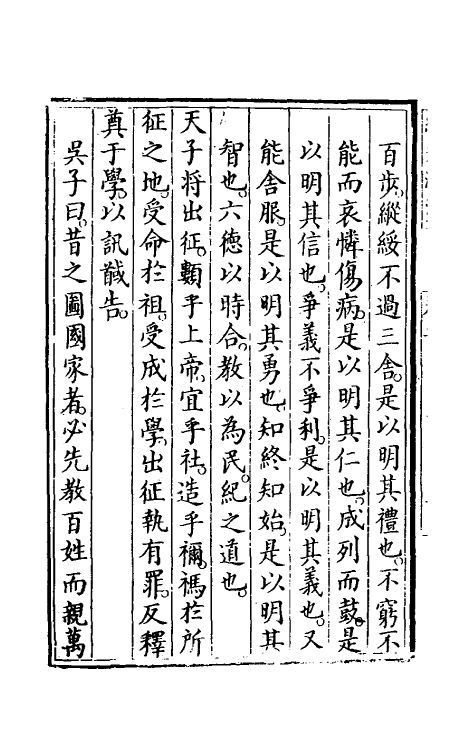 百步。縱綏不過三舍。是以明其禮也。不窮不
能而哀憐傷病。是以明其仁也。成列而鼓。是
以明其信也。爭義不爭利。是以明其義也。又
能舍服。是以明其勇也。知終知始。是以明其
智也。六德以時合。教以為民。紀之道也。
天子將出征。類乎上帝。宜乎社。造乎禰。禡於所
征之地。受命於祖。受成於學。出征執有罪。反釋
奠于學。以訊馘告。
吳子曰。昔之圖國家者。必先教百姓而親萬